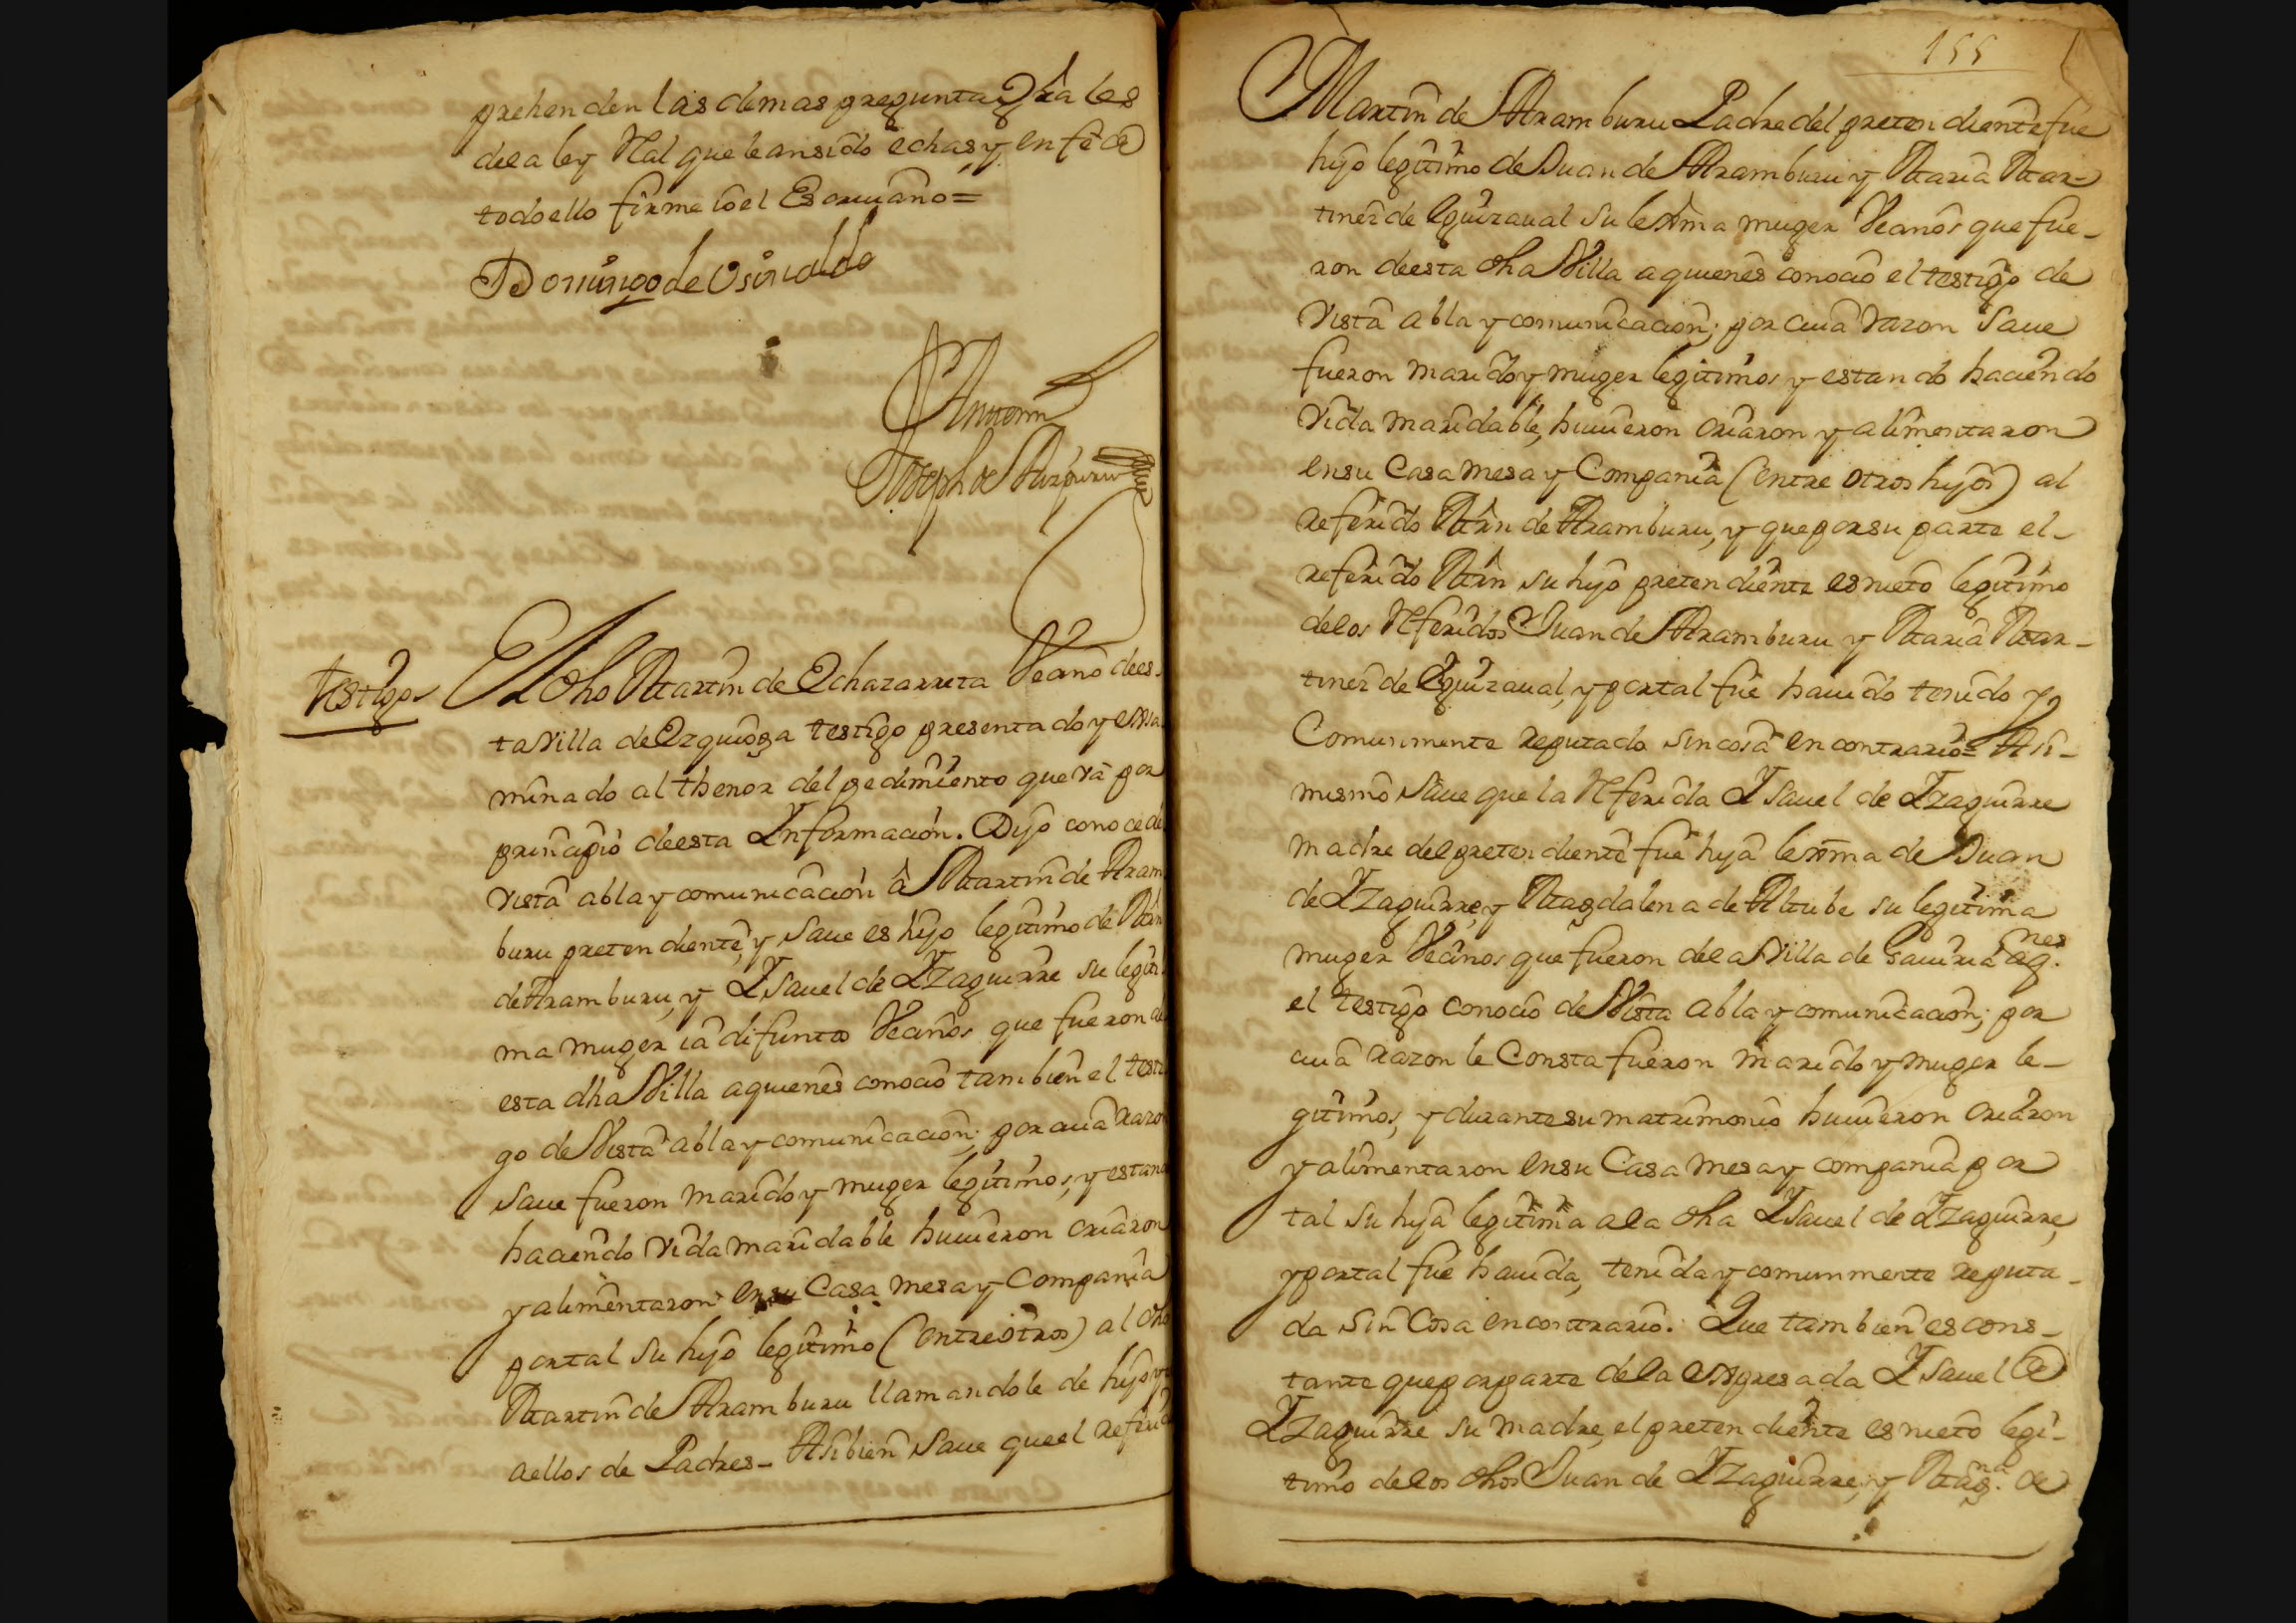 prehenden las demas preguntas Gra les
dela ley Real que le an sido echas y en fe de
todo ello firme io el Escriuano=
Domingo de Osinalde
Antemi
Joseph de Aizpuru
testigo El dho Martin de Echazarreta Vecino de es-
ta Villa de Ezquioga testigo presentado y exsa
minado al thenor del pedimiento que va por
principio de esta Informacion. Dijo conoce de
vista abla y comunicacion â Martin de Aram
buru pretendiente, y saue es hijo legitimo de Mrn
de Aramburu, y Isauel de Izaguirre su legiti
ma muger ia difuntos Vecinos que fueron de
esta dha Villa a quienes conocio tambien el testi
go de Vista abla y comunicacion; por cuia razon
saue fueron marido y muger legitimos, y estando
haciendo vida maridable huuieron criaron
y alimentaron en su Casa mesa y Compania
por tal su hijo legitimo (entre otros) al dho
Martin de Aramburu llamandole de hijo y
a ellos de Padres- Asibien saue que el referido
155
Martin de Aramburu Padre del pretendiente fue
hijo legitimo de Juan de Aramburu y Maria Mar-
tinez de Eguizaual su lexma muger Vecinos que fue-
ron de esta dha Villa a quienes conocio el testigo de
vista abla y comunicacion; por cuia razon saue
fueron marido y muger legitimos y estando haciendo
vida maridable, huuieron criaron y alimentaron
en su Casa mesa y Compania (entre otros hijos) al
referido Mrn de Aramburu, y que por su parte el-
referido Mrn su hijo pretendiente es nieto legitimo
de los Referidos Juan de Aramburu y Maria Mar-
tinez de Eguizaual, y por tal fue hauido tenido y
Comunmente reputado sin cosa en contrario= Asi-
mismo saue que la Referida Isauel de Izaguirre
madre del pretendiente fue hija lexma de Juan
de Izaguirre, y Magdalena de Altube su legitima
muger Vecinos que fueron de la Villa de Gauiria aq.nes
el testigo conocio de Vista abla y comunicacion; por
cuia razon le Consta fueron marido y muger le-
gitimos, y durante su matrimonio huuieron criaron
y alimentaron en su Casa mesa y compania por
tal su hija legitima a la dha Isauel de Izaguirre,
y por tal fue hauida, tenida y comunmente reputa-
da sin Cosa en contrario. Que tambien es cons-
tante que por parte de la expresada Isauel de
Izaguirre su madre, el pretendiente es nieto legi-
timo de los dhos Juan de Izaguirre, y Mag.na de